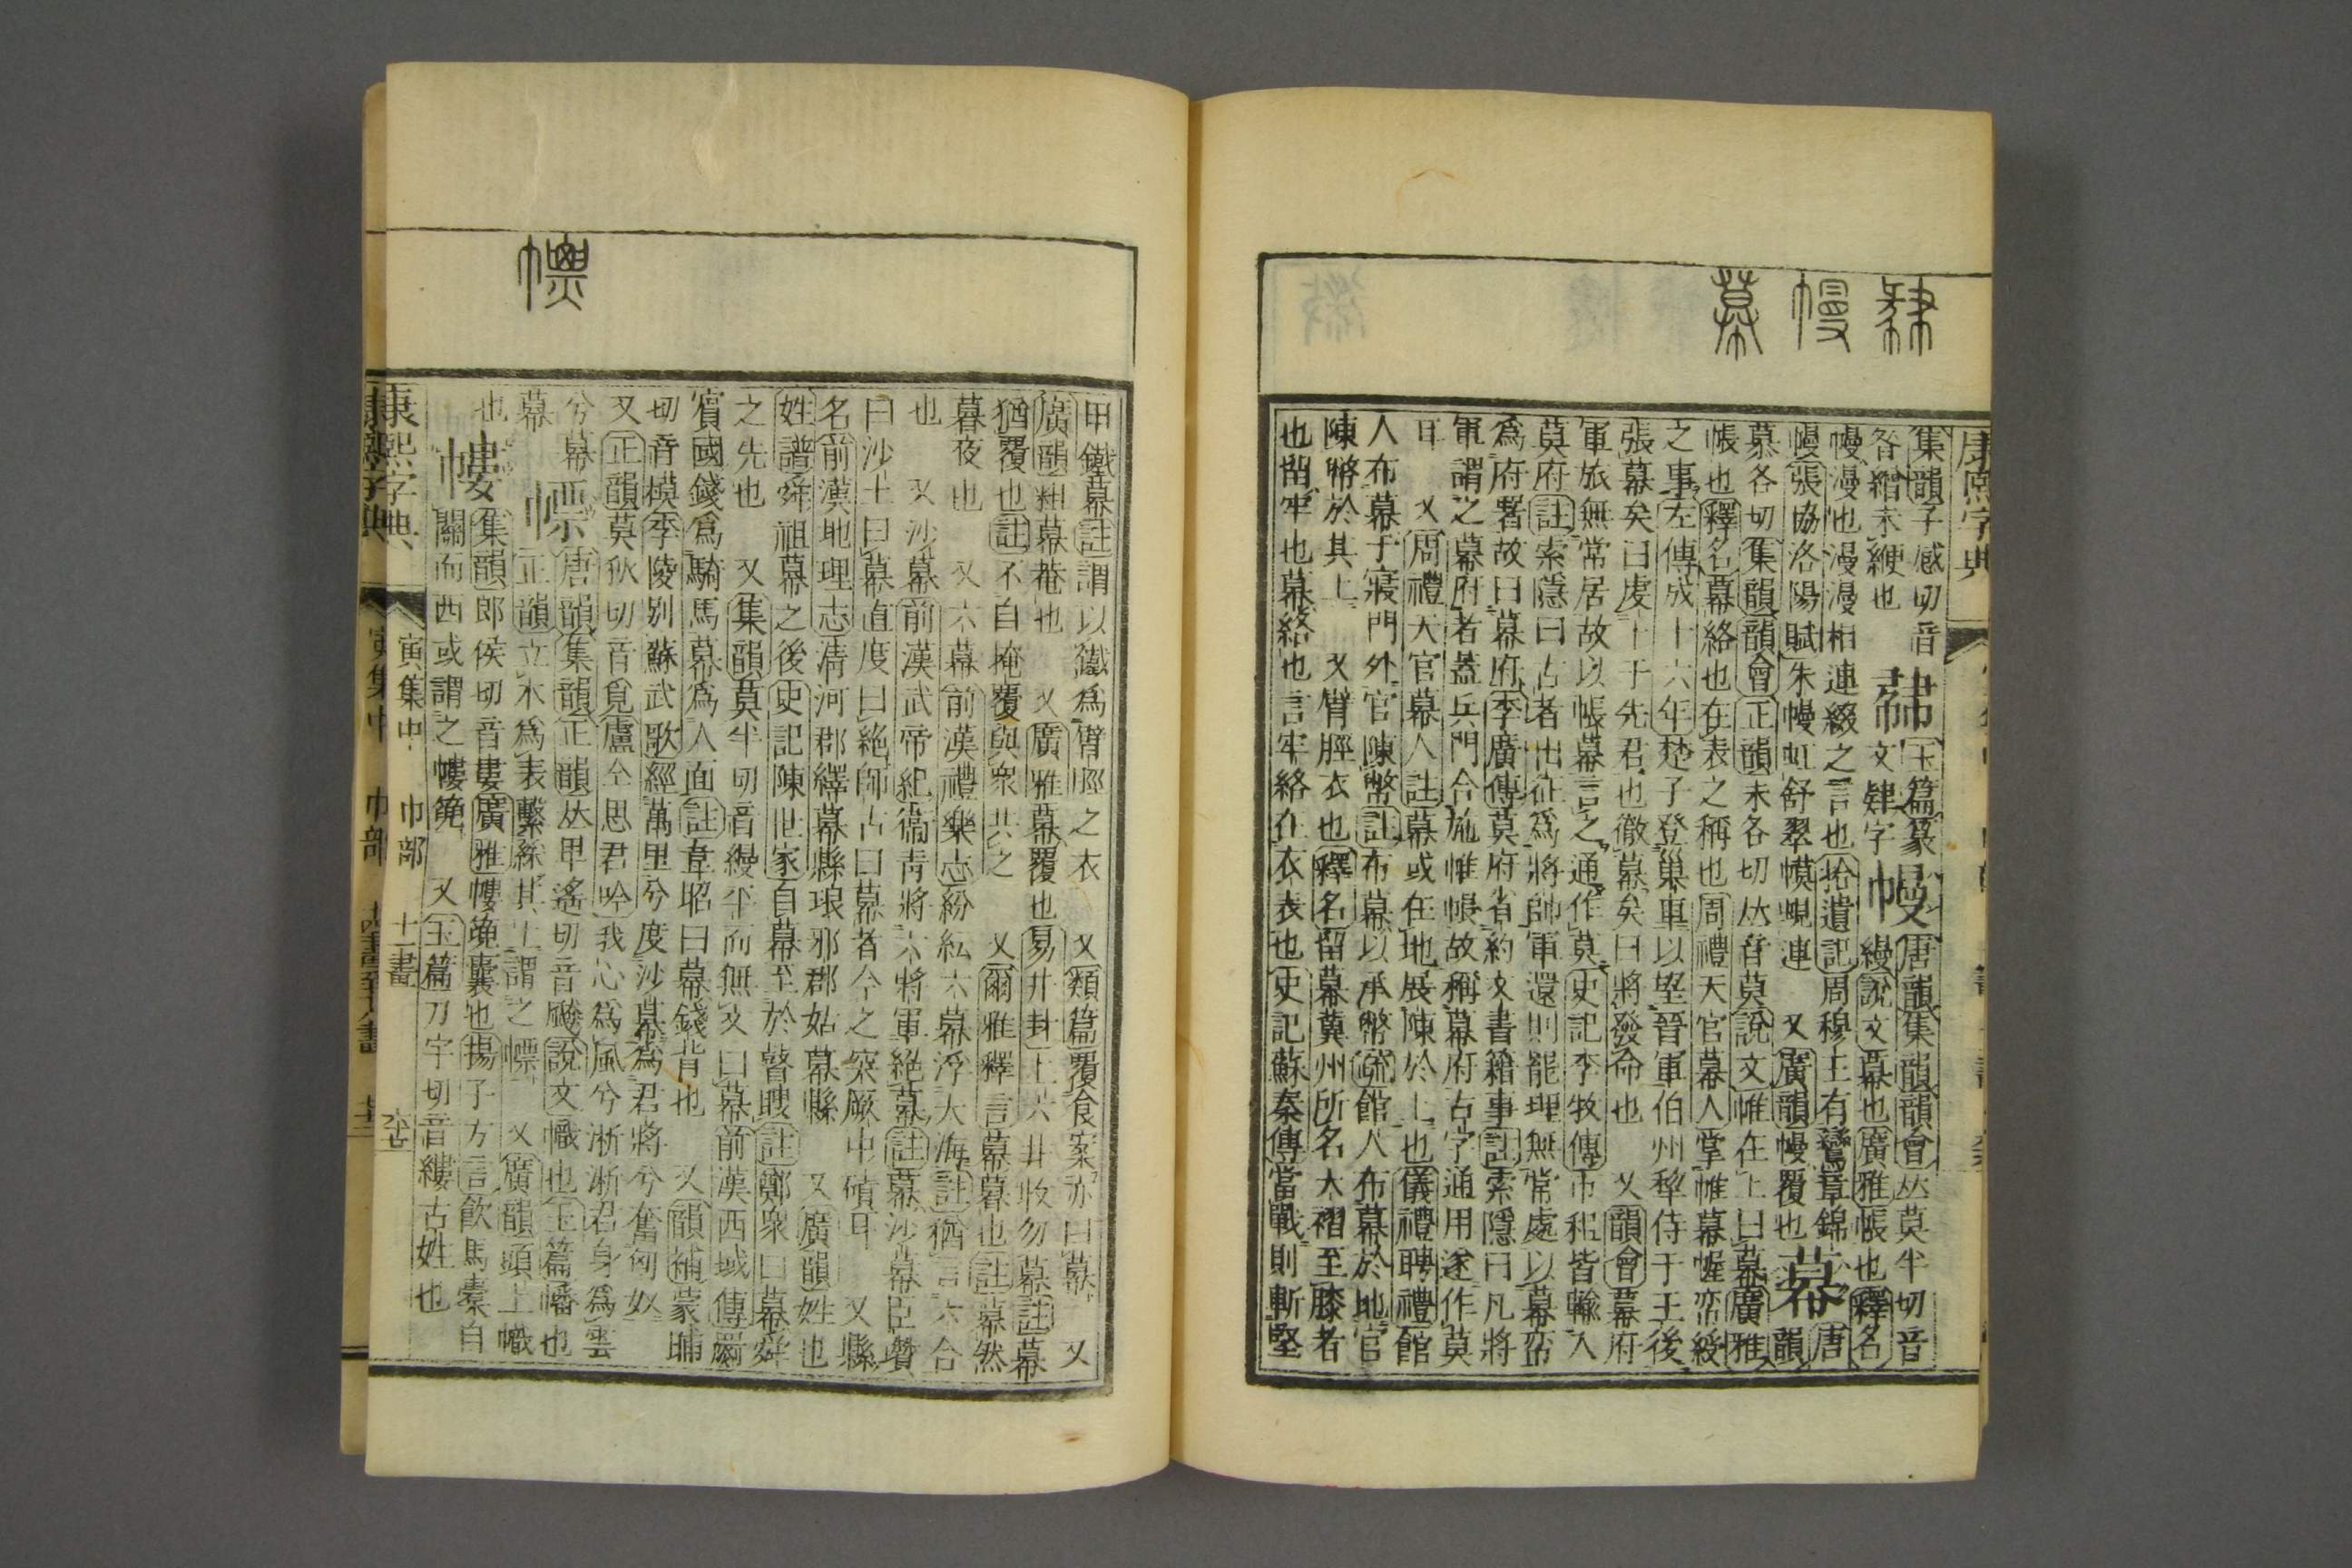 幔
幕
康熙字典
集韻子感切音
昝繒未緶也
玉篇篆
文肄字
幔
唐韻集韻韻會𠀤莫半切音
縵說文幕也廣雅帳也釋名
幔漫也漫漫相連綴之言也拾遺記周穆王有鸞章錦
幔張協洛陽賦朱幔虹舒翠幙蜺連 又廣韻幔覆也
幕
唐
韻
慕各切集韻韻會正韻末各切𠀤音莫說文帷在上曰幕廣雅
帳也釋名幕絡也在表之稱也周禮天官幕人掌帷幕幄帟綬
之事左傳成十六年楚子登巢車以望晉軍伯州犂侍于王後
張幕矣曰虔卜于先君也徹幕矣曰將發命也 又韻會幕府
軍旅無常居故以帳幕言之通作莫史記李牧傳市租皆輸入
莫府註索隱曰古者出征爲將帥軍還則罷理無常處以幕帟
爲府署故曰幕府李廣傳莫府省約文書籍事註索隱曰凡將
軍謂之幕府者蓋兵門合施帷帳故稱幕府古字通用遂作莫
耳 又周禮天官幕人註幕或在地展陳於上也儀禮聘禮館
人布幕于寢門外官陳幣註布幕以承幣疏館人布幕於地官
陳幣於其上 又臂脛衣也釋名留幕冀州所名大褶至膝者
也留牢也幕絡也言牢絡在衣表也史記蘇秦傳當戰則斬堅
甲鐵幕註謂以鐵爲臂脛之衣 又類篇覆食案亦曰幕 又
廣韻粗幕菴也 又廣雅幕覆也易井卦上六井收勿幕註幕
猶覆也註不自掩覆與衆共之 又爾雅釋言幕暮也註幕然
暮夜也 又六幕前漢禮樂志紛紜六幕浮大海註猶言六合
也 又沙幕前漢武帝紀衞靑將六將軍絕幕註幕沙幕臣瓚
曰沙土曰幕直度曰絕師古曰幕者今之突厥中磧耳 又縣
名前漢地理志淸河郡繹幕縣琅邪郡姑幕縣 又廣韻姓也
姓譜舜祖幕之後史記陳世家自幕至於瞽瞍註鄭衆曰幕舜
之先也 又集韻莫半切音縵平而無文曰幕前漢西域傳罽
賓國錢爲騎馬幕爲人面註韋昭曰幕錢背也 又韻補蒙晡
切音模李陵別蘇武歌經萬里兮度沙幕爲君將兮奮匈奴
又正韻莫狄切音覓盧仝思君吟我心爲風兮淅淅君身爲雲
兮幕
幕
幖
唐韻集韻正韻𠀤甲遙切音飈說文幟也玉篇幡也
正韻立木爲表繫綵其上謂之幖 又廣韻頭上幟
也
幉
集韻郎侯切音婁廣雅㡞㡈囊也揚子方言飮馬橐自
關而西或謂之㡞㡈 又玉篇力宇切音縷古姓也
康熙字典
寅集中
巾部
十一畫